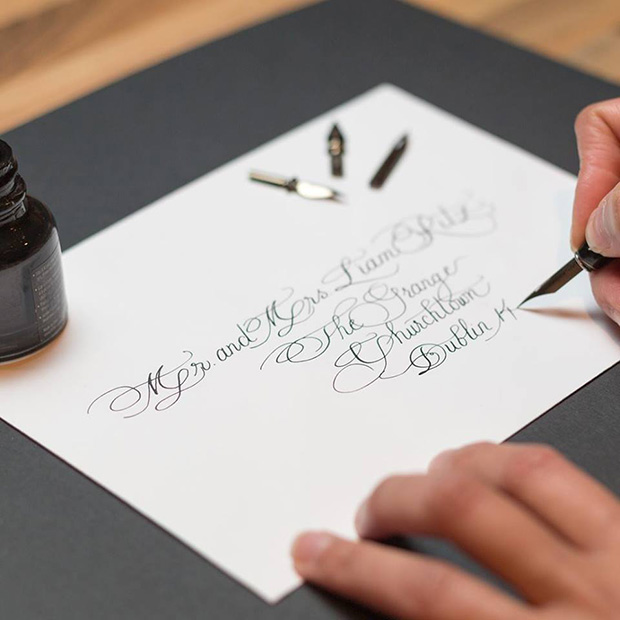 Mr. and Mrs Liam
The Grange
Churchtown
Dublin 14